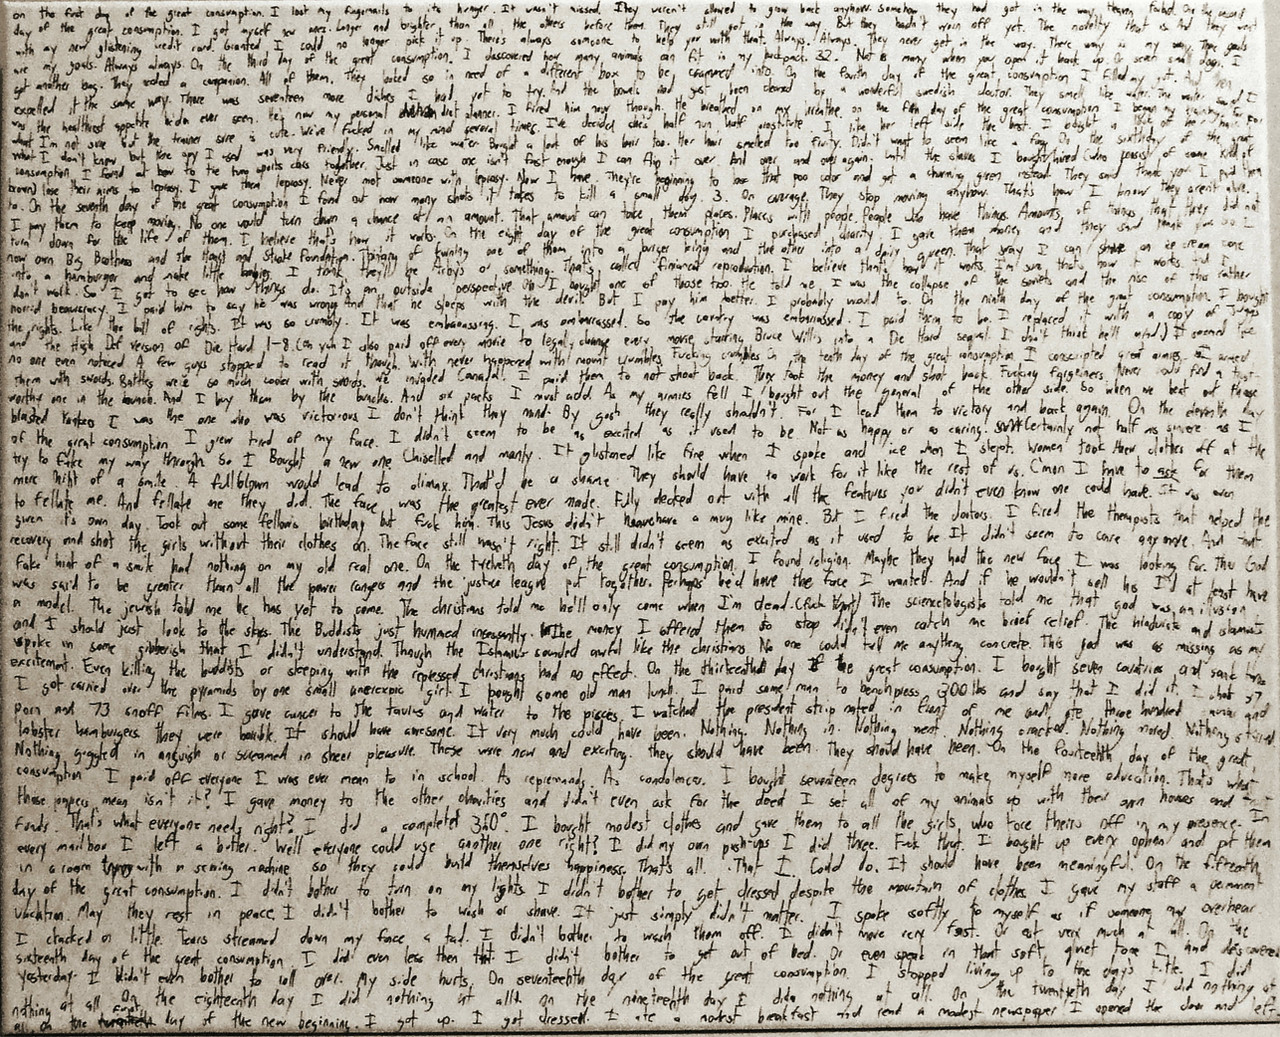 on the first day of the great consumption. I lost my fingernails to its hunger. It wasn't missed. They weren't allowed to grow back anyhow. Somehow they had got in the way. On the second
day of the great consumption. I got myself new ones. Longer and brighter than all the others before them. They still got in the way. But they hadn't worn off yet. The novelty that is. And they went
with my new glistening credit card. Granted I could no longer pick it up. There's always someone to help you with that. Always. Always. They never get in the way. There way is my way. There goals
are my goals. Always always. On the third day of the great consumption. I discovered how many animals can fit in my backpack. 32. Not as many when you open it back up. Or seats small dogs. I
got another bag. They needed a companion. All of them. They looked so in need of a different box to be crammed into. On the fourth day of the great consumption I filled my gut. And then
expelled it the same way. There was seventeen more dishes I had yet to try. And the bowels had just been cleared by a wonderful swedish doctor. They smell like water. The water said I
was the healthiest appetite he'd ever seen. He's now my personal diet planner. I fired him now though. He breathed on my breathe on the fifth day of the great consumption I began my training for
what I'm not sure. But the trainer sure is cute. We've fucked in my mind several times. I've decided she's half nun half prostitute. I like her left side the best. I bought a lock of her hair
what I don't know but the spy I used was very friendly. Smelled like water. Bought a lot of his hair too. Her hair smelled too fruity. Didn't want to seem like a fag. On the sixth day of the great
consumption I found out how to tie two sports cars together. Just in case one isn't fast enough I can flip it over. And over and over again. Until the slaves I bought/hired (who consist of some kind of
brown) lose their arms to leprosy. I gave them leprosy. Never met someone with leprosy. Now I have. They're beginning to lose that poo color and got a charming green instead. They said thank you. I paid them
to. On the seventh day of the great consumption I found out how many shots it takes to kill a small dog. 3. On average. They stop moving anyhow. That's how I know they aren't alive.
I pay them to keep moving. No one would turn down a chance at an amount. That amount can take them places. Places with people. People who have things. Amounts of things that they did not
turn down for the life of them. I believe that's how it works. On the eight day of the great consumption I purchased charity. I gave them money and they said thank you. So I
now own Big Brothers and the Heart and Stroke Foundation. Thinking of turning one of them into a burger king and the other into a dairy queen. That way I can shove an ice cream cone
into a hamburger and make little babies. I think they'll be Arby's or something. That's called financial reproduction. I believe that's how it works. I'm sure that's how it works. But I
don't work. So I got to see how things do. It's an outside perspective. Oh I bought one of those too. He told me I was the collapse of the soviets and the rise of this rather
horrid beaucracy. I paid him to say he was wrong. And that he sleeps with the devil. But I pay him better. I probably would to. On the ninth day of the great consumption I bought
the rights. Like the bill of rights. It was so crumbly. It was embarassing. I was embarrassed. So the country was embarrassed. I paid them to be. I replaced it with a copy of Juggs
and the High Def version of Die Hard 1-8. (oh yah I also paid off every movie to legally change every movie starring Bruce Willis into a Die Hard sequel. I don't think he'll mind.) It seemed like
no one even noticed. A few guys stopped to read it though. With never happened with mount crumbles. Fucking crumbles. On the tenth day of the great consumption I conscripted great armies. I armed
them with swords. Battles were so much cooler with swords. We invaded Canada! I paid them to not shoot back. They took the money and shot back. Fucking fargeiners. Never could find a trust-
worthy one in the bunch. And I buy them by the bunchs. And six packs I must add. As my armies fell I bought out the general of the other side. So when we beat out those
blasted Yankees I was the one who was victorious. I don't think they mind. By gosh they really shouldn't. For I lead them to victory and back again. On the eleventh day
of the great consumption I grew tired of my face. I didn't seem to be as excited as it used to be. Not as happy or as caring. Certainly not half as sincere as I
try to fake my way through. So I Bought a new one. Chiselled and manly. It glistened like fine when I spoke and ice when I slept. Women took their clothes off at the
mere hint of a smile. A fullblown would lead to climax. That'd be a shame. They should have to work for it like the rest of us. C'mon I have to ask for them
to fellate me. And fellate me they did. The face was the greatest ever made. Fully decked out with all the features you didn't even know one could have. It was even
given its own day. Took out some fellows birthday but fuck him. This Jesus didn't have a mug like mine. But I fired the doctors. I fired the therapists that helped the
recovery and shot the girls without their clothes on. The face still wasn't right. It still didn't seem as excited as it used to be. It didn't seem to care anymore. And that
fake hint of a smirk had nothing on my old real one. On the twelveth day of the great consumption. I found religion. Maybe they had the new face I was looking for. Thi God
was said to be greater than all the power rangers and the justice league put together. Perhaps he'd have the face I wanted. And if he wouldn't sell his I'd at least have
a model. The jewish told me he has yet to come. The christians told me he'll only come when I'm dead. (Fuck that) The scienetologists told me that god was an illusion
and I should just look to the ships. The Buddists just hummed insesantly. The money I offered them to stop didn't even catch me brief relief. The hinduists and islamists
spoke in some gibberish that I didn't understand. Though the Islamists sounded awful like the christians. No one could tell me anything concrete. This god was as missing as my
excitement. Even killing the buddists or sleeping with the repressed christians had no effect. On the thirteenth day of the great consumption. I bought seven countries and sank two.
I got carried over the pyramids by one small anerexic girl. I bought some old man lunch. I paid some man to benchpress 300lbs and say that I did it. I shot 37
porn and 73 snoff films. I gave cancer to the taurus and water to the pisces. I watched the president strip naked in front of me and ate three hundred and
lobster hamburgers. They were horrible. It should have awesome. It very much could have been. Nothing. Nothing in. Nothing went. Nothing cracked. Nothing moved. Nothing stirred.
Nothing giggled in anguish or screamed in sheer pleasure. These were new and exciting. they should have been. They should have been. On the fourteenth day of the great
consumption I paid off everyone I was ever mean to in school. As repremands. As condolences. I bought seventeen degrees to make myself more education. That's what
those papers mean isn't it? I gave money to the other charities and didn't even ask for the deed. I set all of my animals up with their own homes and
funds. That's what everyone needs right? I did a completed 360°. I bought modest clothes and gave them to all the girls who tore theirs off in my presence. In
every mailbox I left a butter. Well everyone could use another one right? I did my own push-ups I did three. Fuck that. I bought up every orphan and put them
in a room with a sewing machine so they could build themselves happiness. That's all. That I could do. It should have been meaningful. On the fifteenth
day of the great consumption. I didn't bother to turn on my lights. I didn't bother to get dressed despite the mountain of clothes. I gave my staff a permanent
vacation. May they rest in peace. I didn't bother to wash or shave. It just simply didn't matter. I spoke softly to myself as if someone may overhear
I cracked a little. Tears streamed down my face a tad. I didn't bother to wash them off. I didn't move very fast. Or eat very much at all. On the
sixteenth day of the great consumption I did even less then that. I didn't bother to get out of bed. Or even speak in that soft, quiet tone I had discovered
yesterday. I didn't even bother to roll over. My side hurts. On seventeenth day of the great consumption. I stopped living up to the day's title. I did
nothing at all. On the eighteenth day I did nothing at all. On the nineteenth day I did nothing at all. On the twentyeth day I did nothing at
all. On the first day of the new beginning. I got up. I got dressed. I ate a modest breakfast and read a modest newspaper. I opened the door and left.